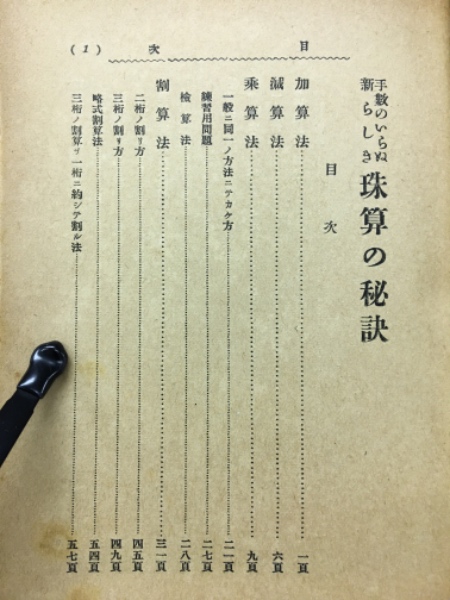 目次 (1)
手数のいらぬ
新らしき
珠算の秘訣
目次
加算法……一頁
減算法……六頁
乗算法……九頁
一般ニ同一ノ方法ニテカケ方……二一頁
練習用問題……二七頁
検算法……二八頁
割算法……三一頁
二桁ノ割リ方……四五頁
三桁ノ割リ方……四九頁
略式割算法……五四頁
三桁ノ割算ヲ一桁ニ約シテ割ル法……五七頁